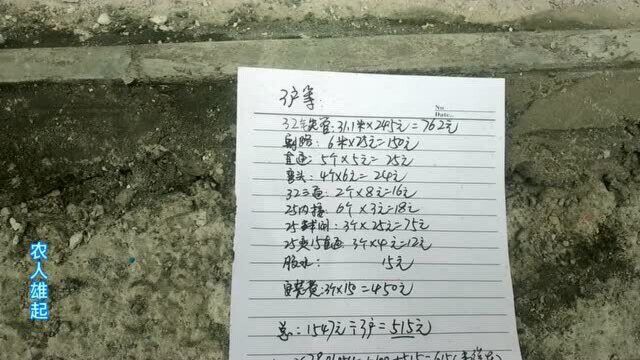 3户等:
No.
Date.
32热管: 31.1米×245元=762元
剔路: 6米×25元=150元
直通: 5个×5元=25元
弯头: 4个×6元=24元
32三通: 2个×8元=16元
25内接: 6个×3元=18元
25球阀: 3个×25元=75元
25变15直通 3个×4元=12元
胶水: 15元
安装费: 3个×150=450元
总: 1547元÷3户=515元
农人雄起